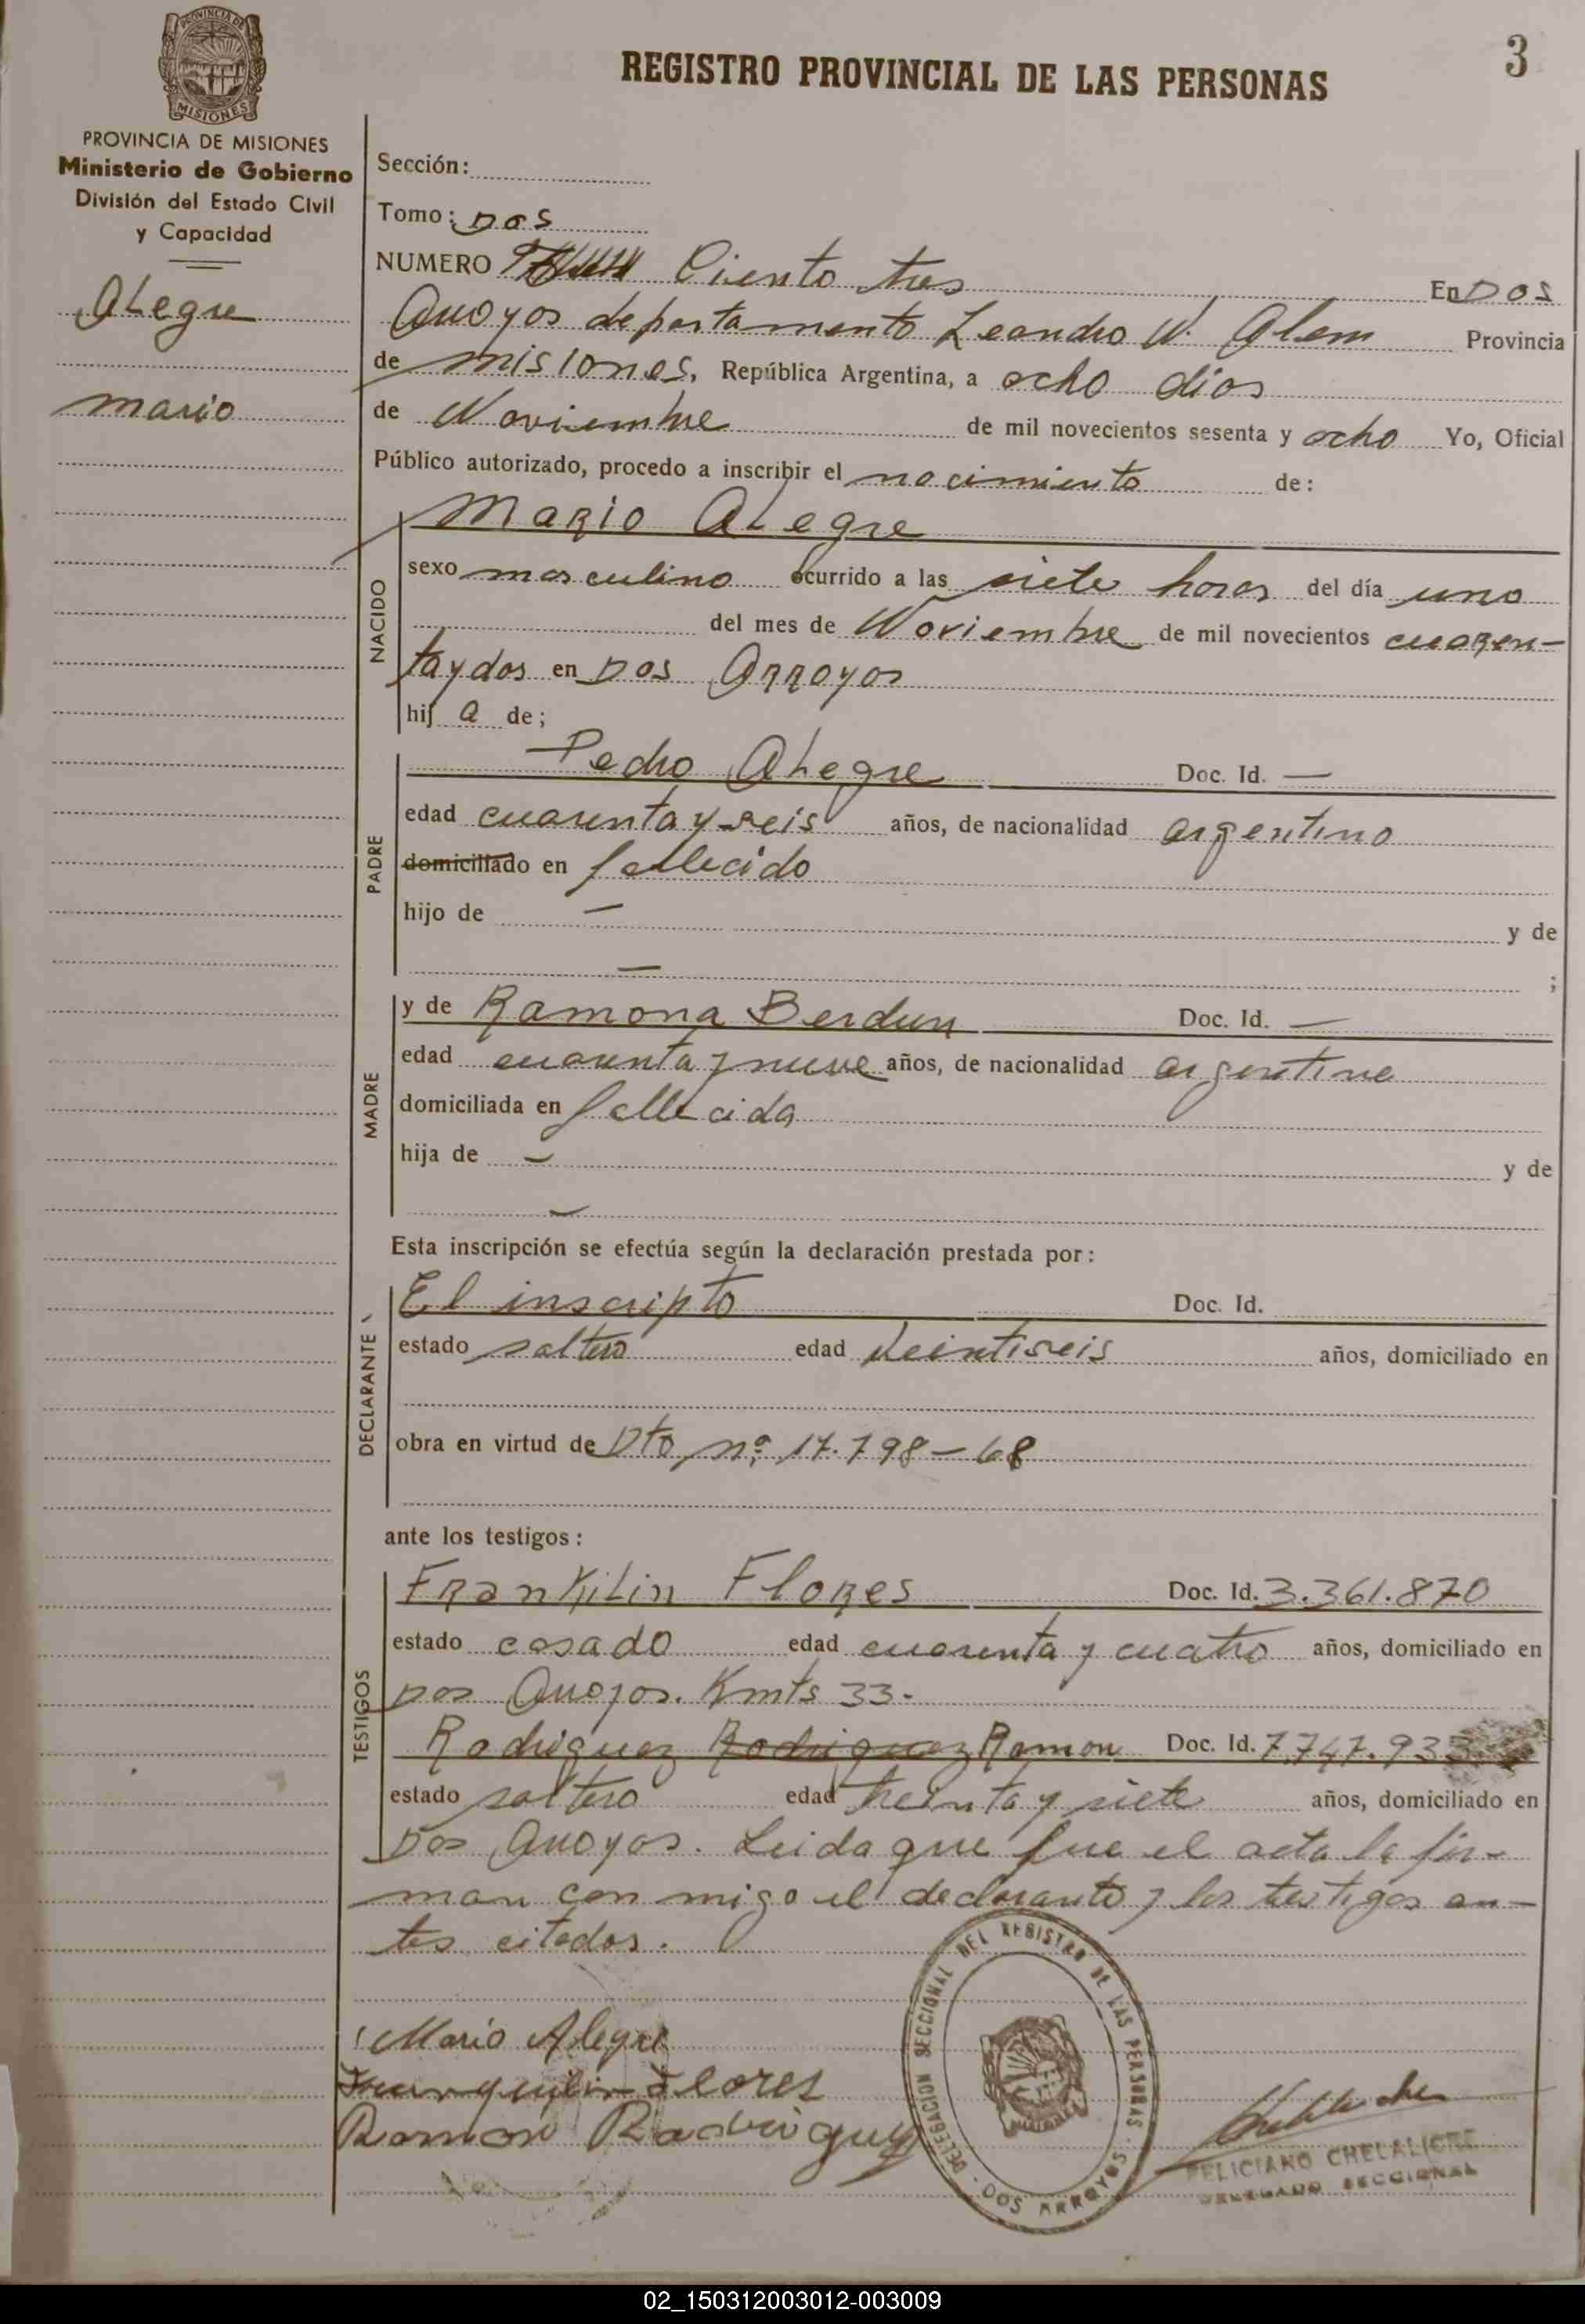 3
REGISTRO PROVINCIAL DE LAS PERSONAS
PROVINCIA DE
MISIONES
PROVINCIA DE MISIONES
Ministerio de Gobierno
División del Estado Civil
y Capacidad
Alegre
mario
Sección:
Tomo: Dos
NUMERO Ciento tres En Dos
Arroyos departamento Leandro N. Alem Provincia
de misiones, República Argentina, a ocho dias
de Noviembre de mil novecientos sesenta y ocho Yo, Oficial
Público autorizado, procedo a inscribir el nacimiento de:
Mario Alegre
NACIDO
sexo masculino ocurrido a las siete horas del día uno
del mes de Noviembre de mil novecientos cuaren-
ta y dos en Dos Arroyos
hij a de;
PADRE
Pedro Alegre Doc. Id. —
edad cuarenta y seis años, de nacionalidad argentino
domiciliado en fallecido
hijo de — y de
— ;
MADRE
y de Ramona Berdun Doc. Id. —
edad cuarenta y nueve años, de nacionalidad argentina
domiciliada en fallecida
hija de — y de
—
Esta inscripción se efectúa según la declaración prestada por:
DECLARANTE
El inscripto Doc. Id.
estado soltero edad veintiseis años, domiciliado en
obra en virtud de Dto nº 17.798-68
ante los testigos:
TESTIGOS
Frankilin Flores Doc. Id. 3.361.870
estado casado edad cuarenta y cuatro años, domiciliado en
Dos Arroyos. Kmts 33.
Rodriguez Rodriguez Ramon Doc. Id. 7.747.933
estado soltero edad treinta y siete años, domiciliado en
Dos Arroyos. Leida que fue el acta la fir-
man con migo el declarante y los testigos an-
tes citados.
Mario Alegre
Flores
Ramon Rodriguez
DELEGACION SECCIONAL DEL REGISTRO DE LAS PERSONAS
DOS ARROYOS
FELICIANO
DELEGADO SECCIONAL
02_150312003012-003009